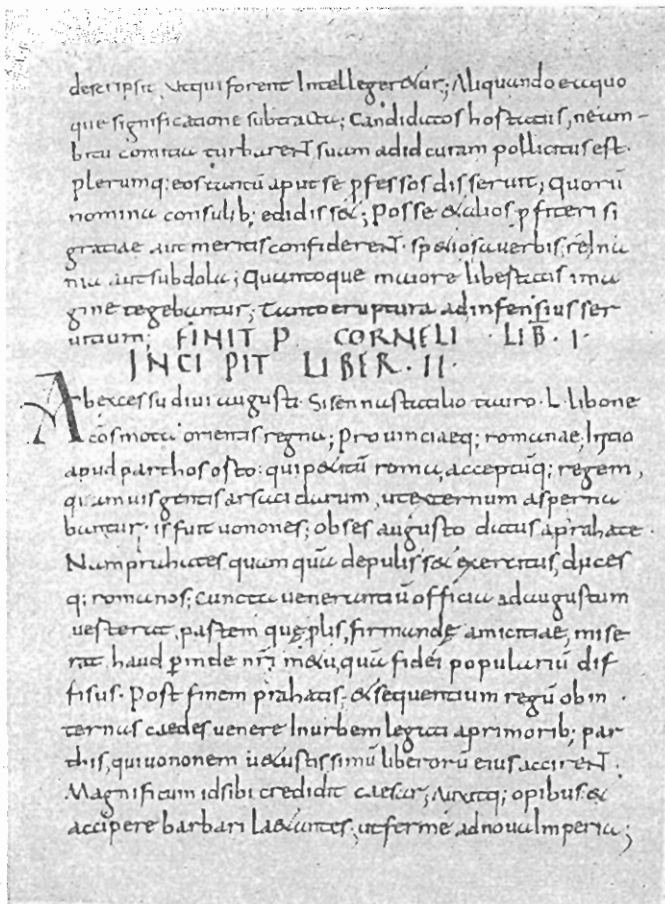 descripsit ut qui forent Intelleger&ur; Aliquando eaquo
que significatione subtracta; Candidatos hortatus, neam-
bitu comitia turbarent suam adid curam pollicitus est.
plerumq; eos tantū aput se pfessos disseruit; quorū
nomina consulib; edidiss&; Posse & alios pfiteri si
gratiae aut meritis confiderent. speciosa uerbis, re Ina
nia aut subdola; Quantoque maiore libertatis ima
gine tegebantur; tanto eruptura adinfensius ser
uitium; FINIT P. CORNELI LIB. I.
INCIPIT LIBER. II.
Ab excessu diui augusti. Sisenna statilio tauro. L. libone
cos mota orientis regna; Prouinciaeq; romanae, Initio
apud parthos orto: qui p&itū roma, acceptūq; regem,
quamuis gentis arsacidarum, ut externum asperna
bantur. is fuit uonones; obses augusto datus aprahate.
Nam prahates quam quā depuliss& exercitus, duces
q; romanos; cuncta uenerantiū officia adaugustum
uerterat, partem quę plis, firmandę amicitiae, mise
rat. haud pinde nri m&u, quā fidei popularium dif
fisus. Post finem prahatis, & sequentium regū ob in
ternas caedes uenere Inurbem legati a primorib; par
this, qui uononem u&ustissimū liberorū eius accirent.
Magnificum id sibi credidit caesar; Auxitq; opibus. &
accipere barbari la&antes; ut ferme ad noua Imperia;